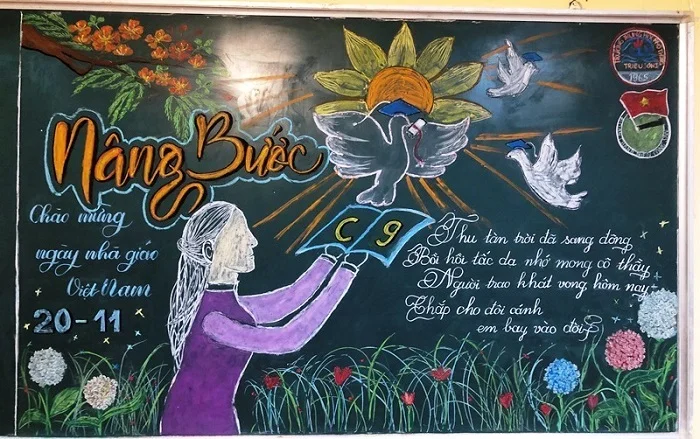 Nâng Bước
Chào mừng
ngày nhà giáo
Việt Nam
20-11
C 9
Thu tàn trời đã sang đông
Bồi hồi tấc dạ nhớ mong cô thầy
Người trao khát vọng hôm nay
Chắp cho đôi cánh
em bay vào đời
1965